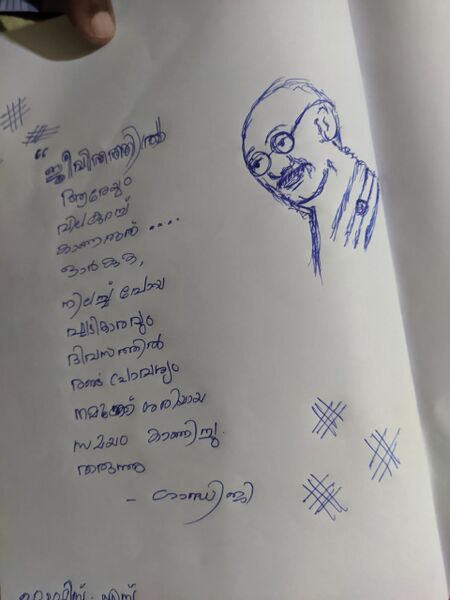 "ജീവിതത്തിൽ
ആരേയും
വിലകുറച്ച്
കാണരുത് ....
ഓർക്കുക,
നിലച്ച് പോയ
ഘടികാരവും
ദിവസത്തിൽ
രണ്ട് പ്രാവശ്യം
നമുക്ക് ശരിയായ
സമയം കാണിച്ചു
തരുന്നു
- ഗാന്ധിജി